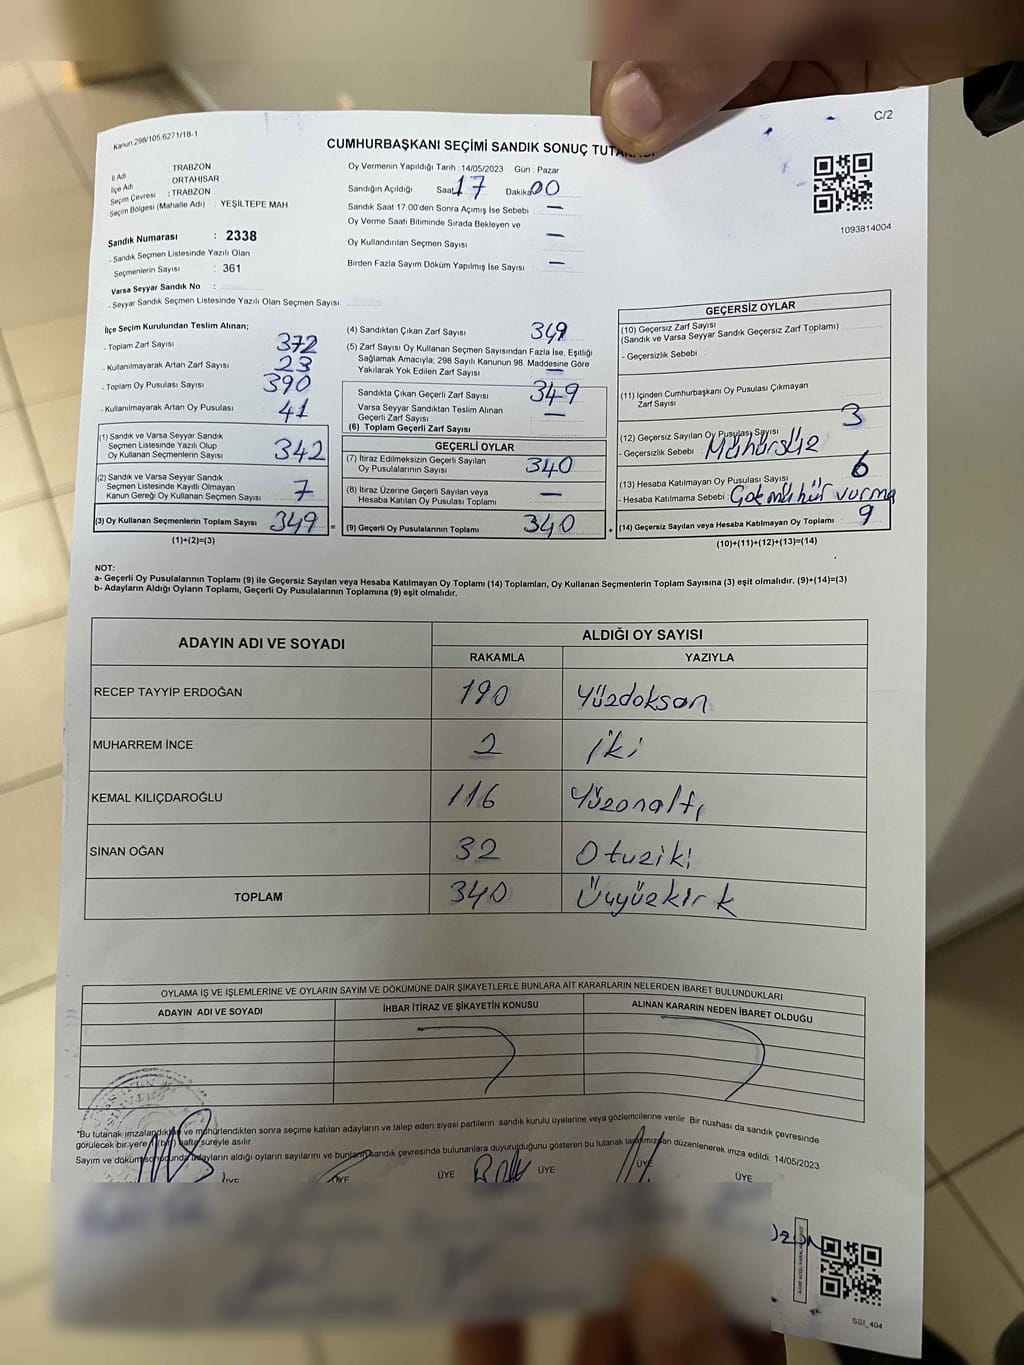 Kanun 298/105.6271/18-1
C/2
CUMHURBAŞKANI SEÇİMİ SANDIK SONUÇ
İl Adı : TRABZON
İlçe Adı : ORTAHİSAR
Seçim Çevresi : TRABZON
Seçim Bölgesi (Mahalle Adı) : YEŞİLTEPE MAH.
Sandık Numarası : 2338
- Sandık Seçmen Listesinde Yazılı Olan
Seçmenlerin Sayısı : 361
Varsa Seyyar Sandık No :
- Seyyar Sandık Seçmen Listesinde Yazılı Olan Seçmen Sayısı:
Oy Vermenin Yapıldığı Tarih : 14/05/2023 Gün : Pazar
Sandığın Açıldığı Saat 17 Dakika 00
Sandık Saat 17.00'den Sonra Açımış İse Sebebi : —
Oy Verme Saati Bitiminde Sırada Bekleyen ve
Oy Kullandırılan Seçmen Sayısı —
Birden Fazla Sayım Döküm Yapılmış İse Sayısı : —
1093814004
İlçe Seçim Kurulundan Teslim Alınan;
- Toplam Zarf Sayısı 372
- Kullanılmayarak Artan Zarf Sayısı 23
- Toplam Oy Pusulası Sayısı 390
- Kullanılmayarak Artan Oy Pusulası 41
(1) Sandık ve Varsa Seyyar Sandık
Seçmen Listesinde Yazılı Olup
Oy Kullanan Seçmenlerin Sayısı 342
(2) Sandık ve Varsa Seyyar Sandık
Seçmen Listesinde Kayıtlı Olmayan
Kanun Gereği Oy Kullanan Seçmen Sayısı 7
(3) Oy Kullanan Seçmenlerin Toplam Sayısı 349 =
(1)+(2)=(3)
(4) Sandıktan Çıkan Zarf Sayısı 349
(5) Zarf Sayısı Oy Kullanan Seçmen Sayısından Fazla İse, Eşitliği
Sağlamak Amacıyla; 298 Sayılı Kanunun 98. Maddesine Göre
Yakılarak Yok Edilen Zarf Sayısı —
Sandıkta Çıkan Geçerli Zarf Sayısı 349
Varsa Seyyar Sandıktan Teslim Alınan
Geçerli Zarf Sayısı —
(6) Toplam Geçerli Zarf Sayısı
GEÇERLİ OYLAR
(7) İtiraz Edilmeksizin Geçerli Sayılan
Oy Pusulalarının Sayısı 340
(8) İtiraz Üzerine Geçerli Sayılan veya
Hesaba Katılan Oy Pusulası Toplamı —
(9) Geçerli Oy Pusulalarının Toplamı 340 +
GEÇERSİZ OYLAR
(10) Geçersiz Zarf Sayısı
(Sandık ve Varsa Seyyar Sandık Geçersiz Zarf Toplamı) :
- Geçersizlik Sebebi :
(11) İçinden Cumhurbaşkanı Oy Pusulası Çıkmayan
Zarf Sayısı
(12) Geçersiz Sayılan Oy Pusulası Sayısı 3
- Geçersizlik Sebebi : Mühürsüz
(13) Hesaba Katılmayan Oy Pusulası Sayısı 6
- Hesaba Katılmama Sebebi : Çokmühür vurma
(14) Geçersiz Sayılan veya Hesaba Katılmayan Oy Toplamı 9
(10)+(11)+(12)+(13)=(14)
NOT:
a- Geçerli Oy Pusulalarının Toplamı (9) ile Geçersiz Sayılan veya Hesaba Katılmayan Oy Toplamı (14) Toplamları, Oy Kullanan Seçmenlerin Toplam Sayısına (3) eşit olmalıdır. (9)+(14)=(3)
b- Adayların Aldığı Oyların Toplamı, Geçerli Oy Pusulalarının Toplamına (9) eşit olmalıdır.
ADAYIN ADI VE SOYADI ALDIĞI OY SAYISI
RAKAMLA YAZIYLA
RECEP TAYYİP ERDOĞAN 190 Yüzdoksan
MUHARREM İNCE 2 iki
KEMAL KILIÇDAROĞLU 116 Yüzonaltı
SİNAN OĞAN 32 Otuziki
TOPLAM 340 Üçyüzkırk
OYLAMA İŞ VE İŞLEMLERİNE VE OYLARIN SAYIM VE DÖKÜMÜNE DAİR ŞİKAYETLERLE BUNLARA AİT KARARLARIN NELERDEN İBARET BULUNDUKLARI
ADAYIN ADI VE SOYADI İHBAR İTİRAZ VE ŞİKAYETİN KONUSU ALINAN KARARIN NEDEN İBARET OLDUĞU
*Bu tutanak imzalandıktan ve mühürlendikten sonra seçime katılan adayların ve talep eden siyasi partilerin sandık kurulu üyelerine veya gözlemcilerine verilir. Bir nüshası da sandık çevresinde
görülecek bir yere (bir) hafta süreyle asılır
Sayım ve döküm sonucunda adayların aldığı oyların sayılarını ve bunların sandık çevresinde bulunanlara duyurulduğunu gösteren bu tutanak tarafımızdan düzenlenerek imza edildi. 14/05/2023
ÜYE ÜYE ÜYE ÜYE ÜYE ÜYE
SSI_404